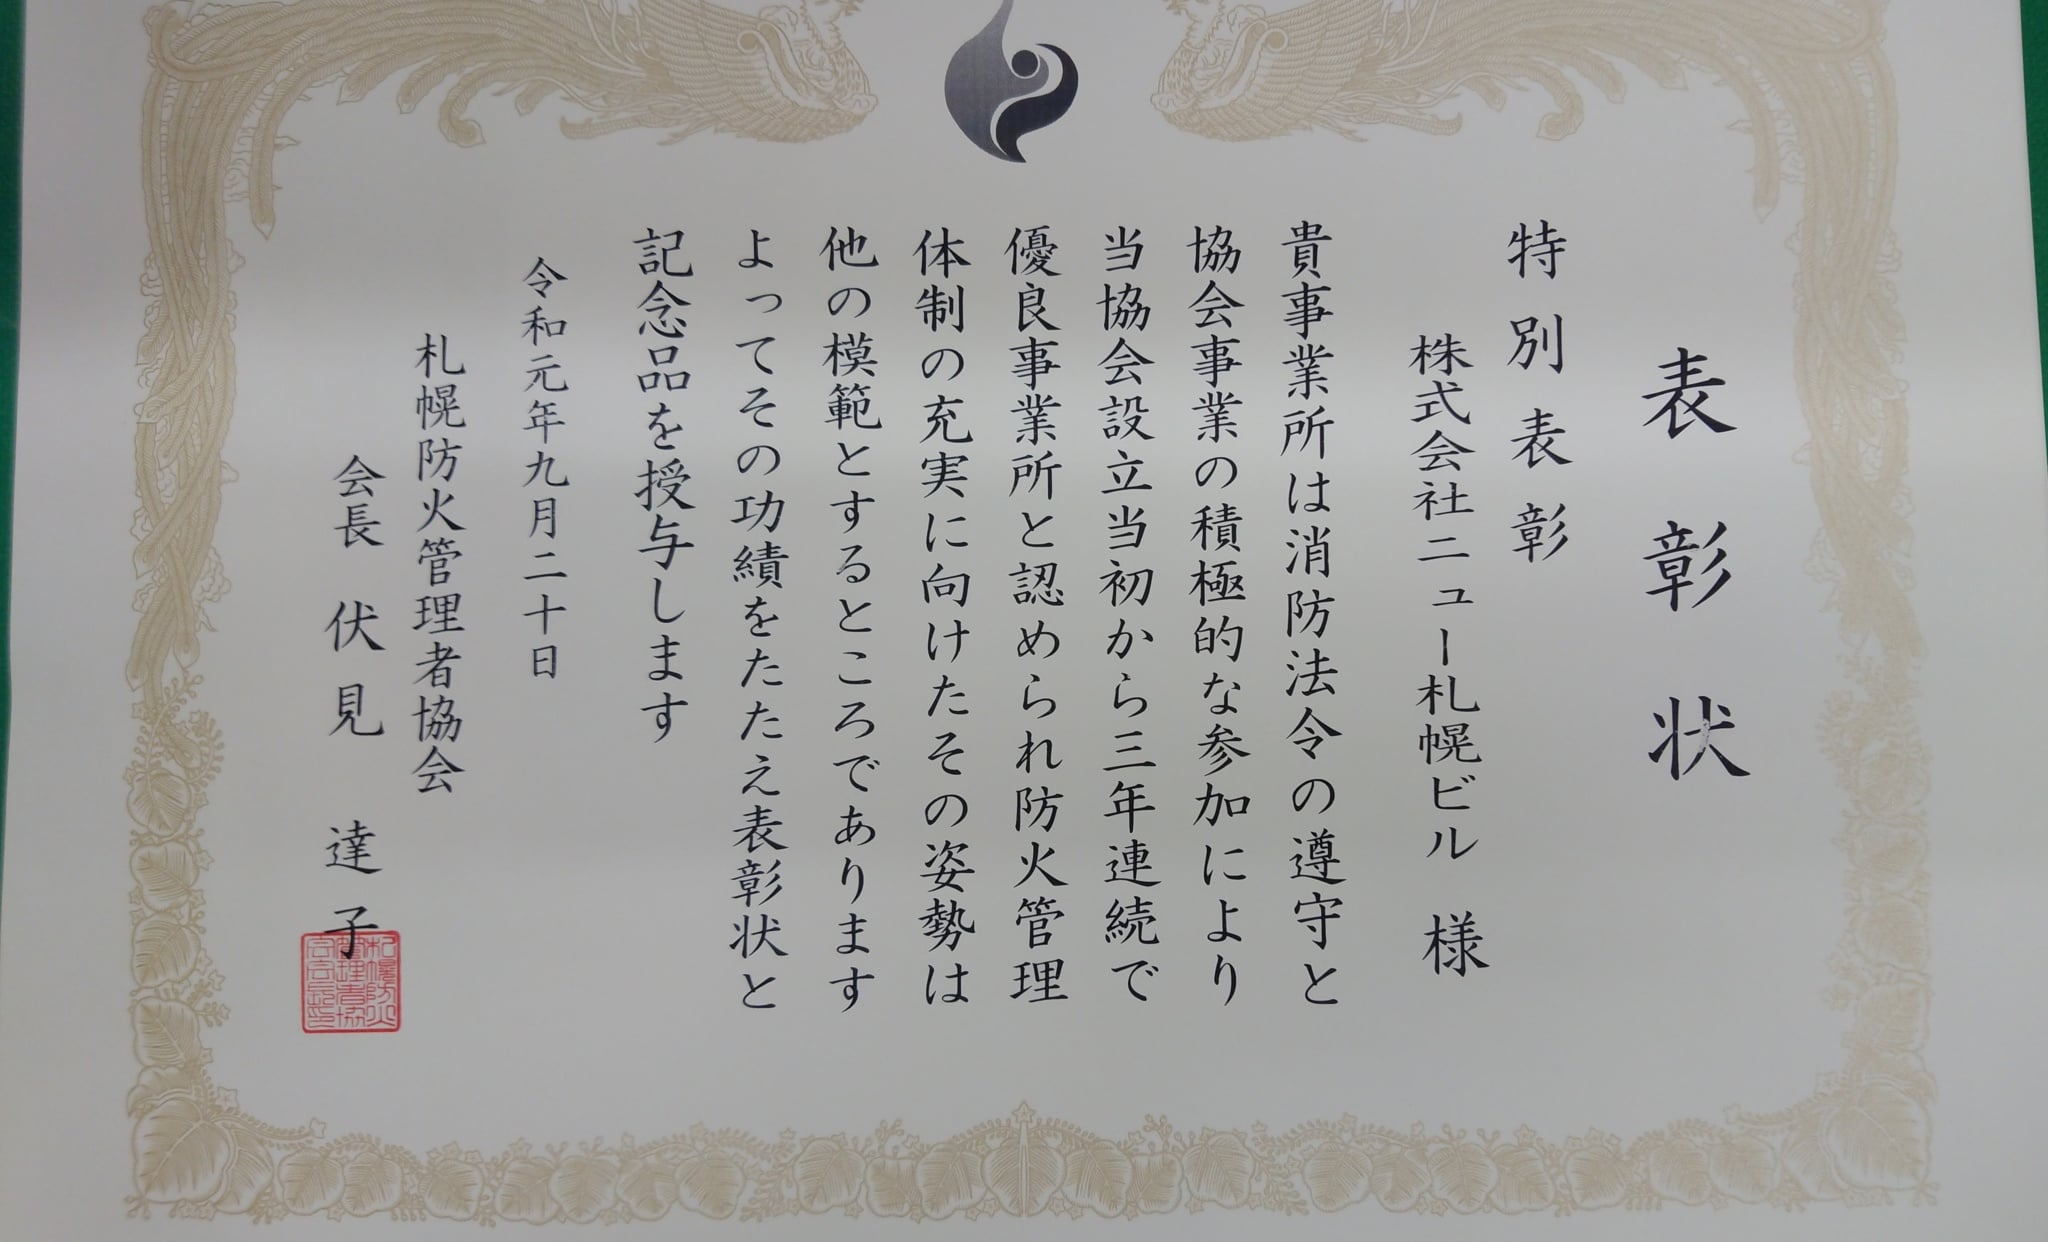 表彰状
特別表彰
株式会社ニュー札幌ビル 様
貴事業所は消防法令の遵守と
協会事業の積極的な参加により
当協会設立当初から三年連続で
優良事業所と認められ防火管理
体制の充実に向けたその姿勢は
他の模範とするところであります
よってその功績をたたえ表彰状と
記念品を授与します
令和元年九月二十日
札幌防火管理者協会
会長 伏見 達子
札幌防火
管理者協
会会長印